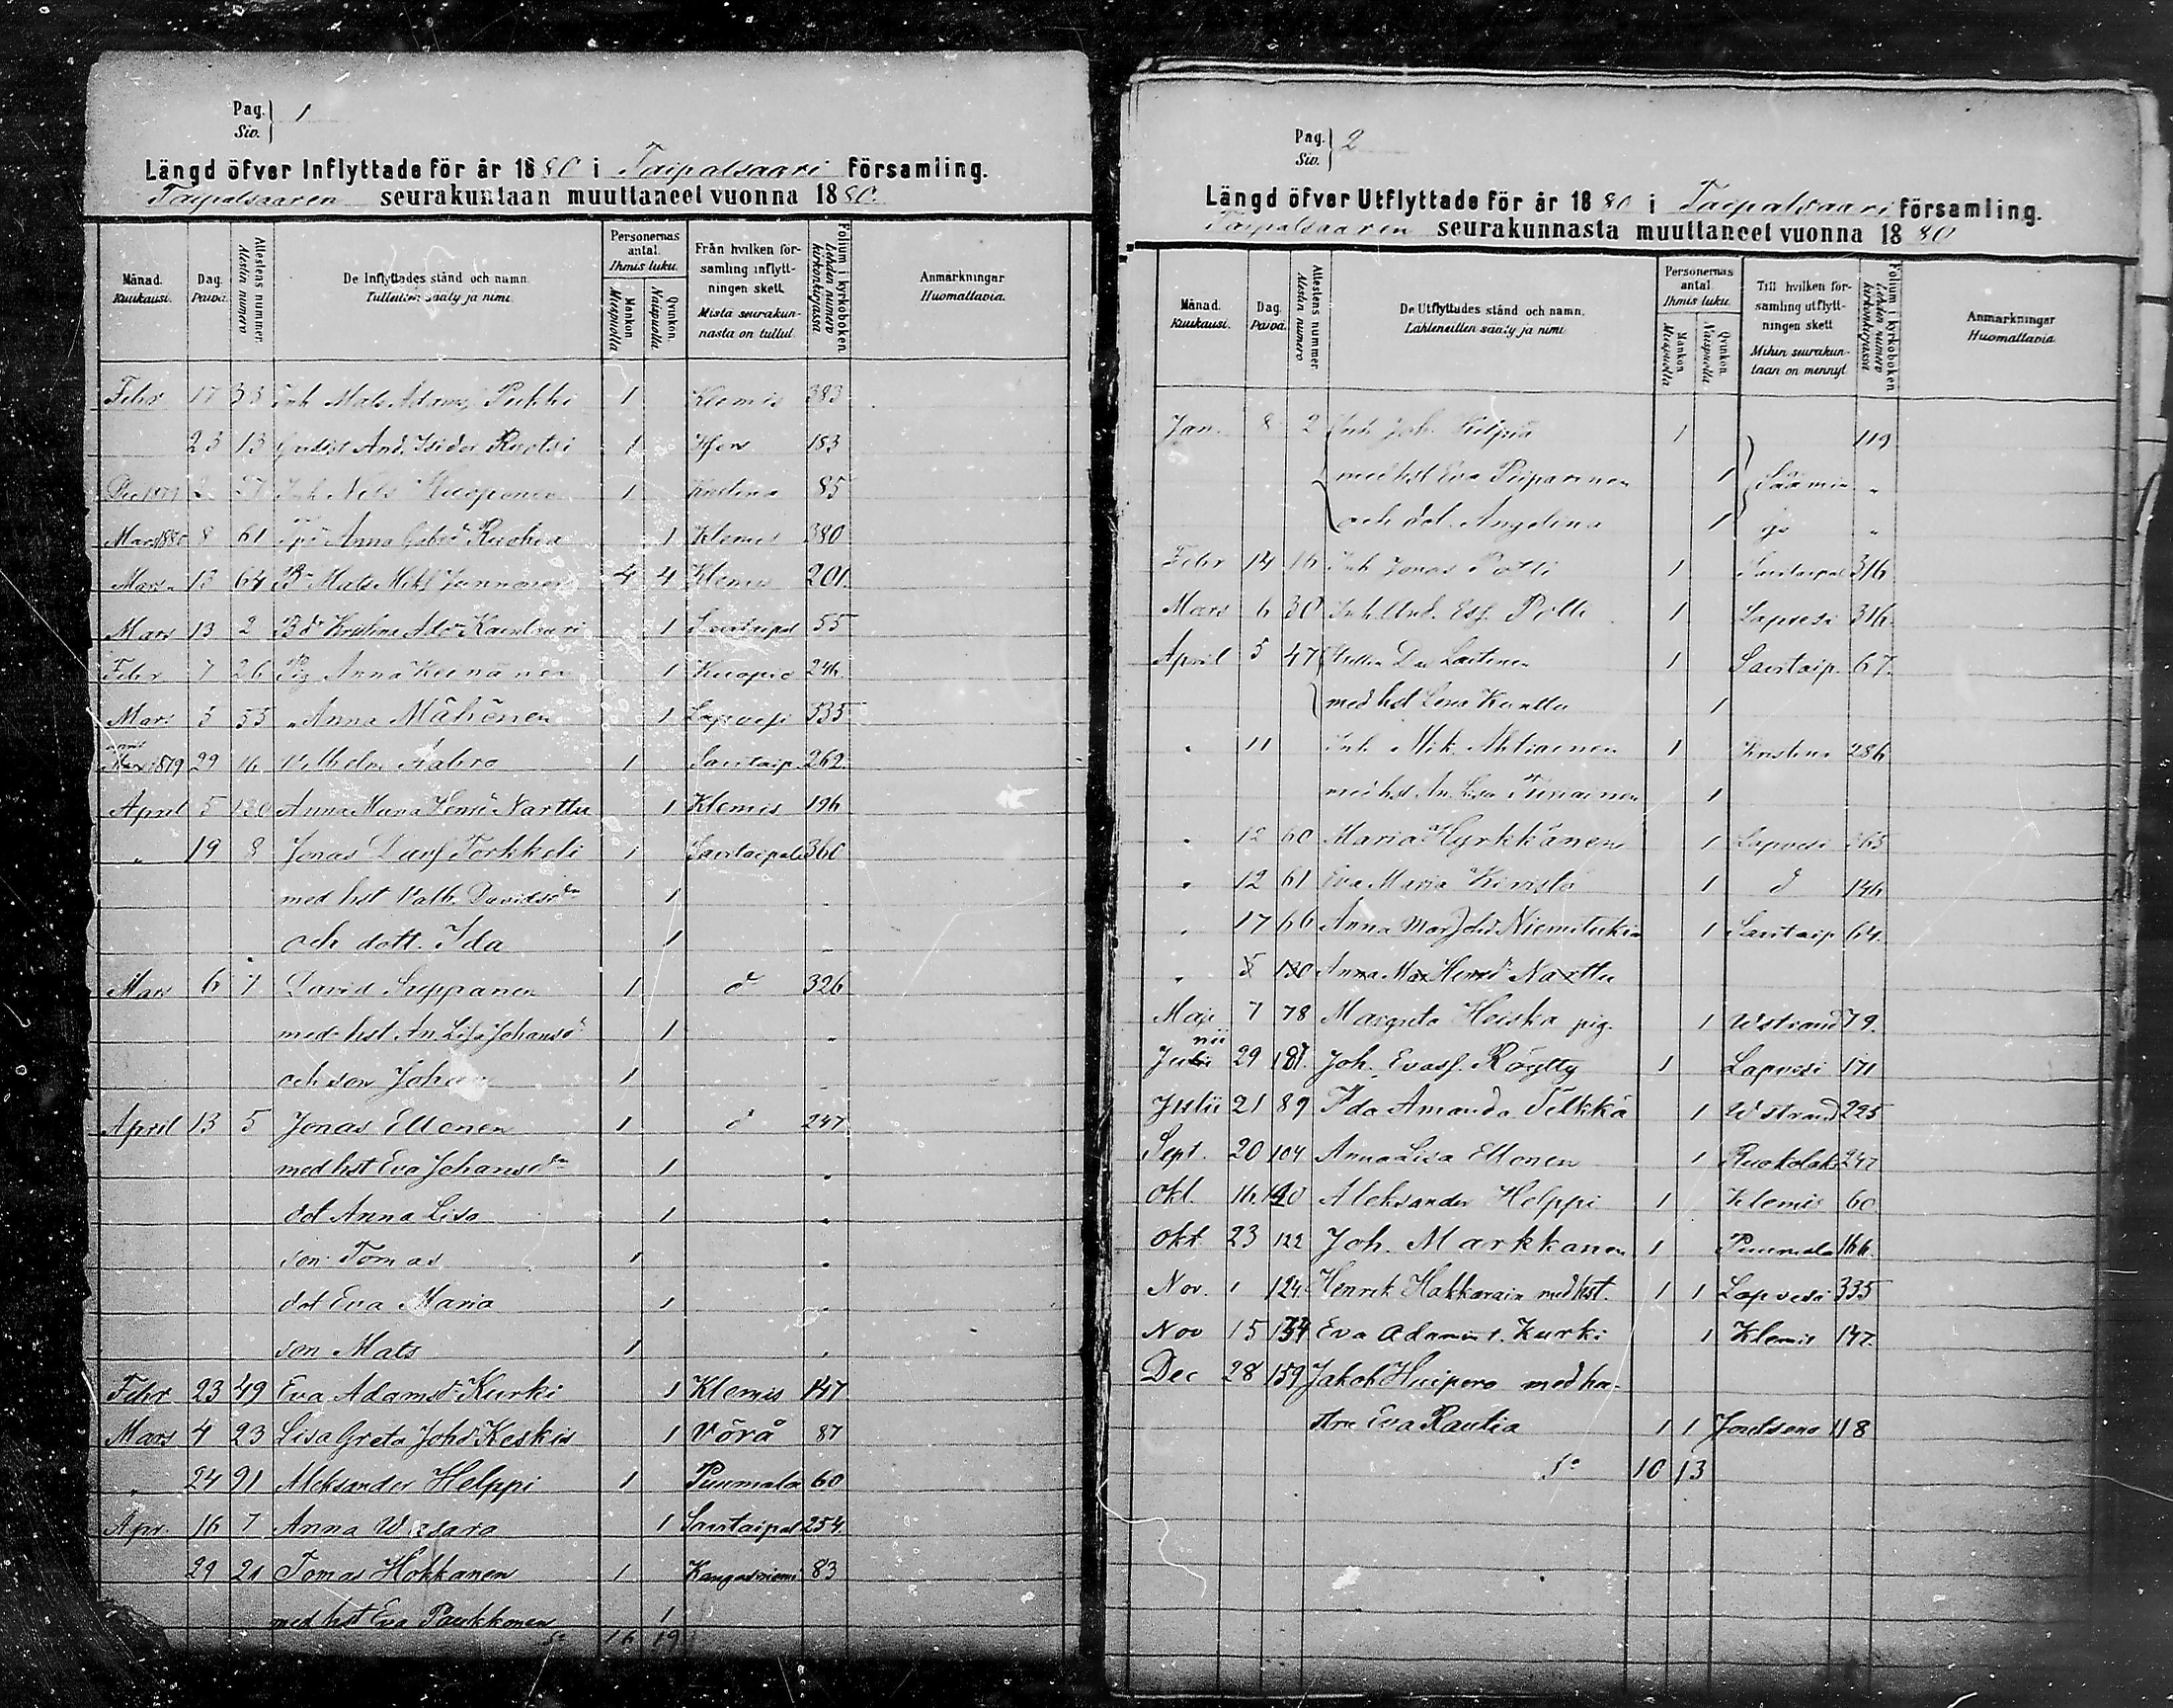 Pag. } 1
Siv.
Längd öfver Inflyttade för år 1880 i Taipalsaari församling.
Taipalsaaren seurakuntaan muuttaneet vuonna 1880.
Månad. Kuukausi. Dag. Päivä. Attestens nummer. Atestin numero De Inflyttades stånd och namn. Tulleitten sääty ja nimi. Personernas antal. Ihmis luku. Mankön. Miespuolia Qvinkön. Naispuolia Från hvilken församling inflyttningen skett. Mistä seurakunnasta on tullut. Folium i kyrkoboken. Lehden numero kirkonkirjassa. Anmärkningar Huomattavia.
Febr 17 33 Inh Mats Adamsf Pukki 1 Klemis 383
23 13 And. Isidor Ruotsi 1 Hfors 183
27 Inh Nils 1 Kristina 85
Mars 1880 8 61 Anna Gabrd Ruohia 1 Klemis 380
Mars 13 64 Mats Mikf Jannonen 4 4 Klemis 201.
Mars 13 2 Bd Kristina Add 1 Savitaipal 55
Febr 7 26 Pig Anna Keinänen 1 Kuopio 246.
Mars 5 55 " Anna Mähönen 1 Lapvesi 535
1879 29 16 Vilhelm 1 Savitaip. 262.
April 5 130 Anna Maria Henrd Narttu 1 Klemis 196
" 19 8 Jonas Davf Torkkeli 1 Savitaipale 360
med hst Valb. Davidsdr 1 "
och dott. Ida 1 "
Mars 6 7 David Seppänen 1 d 326
med hst An. Lisa Johansd 1 "
och son Johan 1 "
April 13 5 Jonas Ellonen 1 d 247.
med hst Eva Johansdr 1 "
dot Anna Lisa 1 "
son Tomas 1 "
dot Eva Maria 1 "
son Mats 1 "
Febr 23 49 Eva Adamsd. Kurki 1 Klemis 147
Mars 4 23 Lisa Greta Johd. Keskis 1 Vörå 87
" 24 91 Aleksander Helppi 1 Puumala 60
Apr. 16 7 Anna Wasara 1 Savitaipal 254.
29 21 Tomas Hokkanen 1 Kangasniemi 83
med hst Eva Paukkonen 1
Sa 16 19
Pag. } 2
Siv.
Längd öfver Utflyttade för år 1880 i Taipalsaari församling.
Taipalsaaren seurakunnasta muuttaneet vuonna 1880
Månad. Kuukausi. Dag. Päivä. Attestens nummer. Atestin numero De Utflyttades stånd och namn. Lähteneitten sääty ja nimi Personernas antal Ihmis luku. Mankön. Miespuolia Qvinkön. Naispuolia Till hvilken församling utflyttningen skett Mihin seurakuntaan on mennyt Folium i kyrkoboken. Lehden numero kirkonkirjassa Anmärkningar Huomattavia
Jan. 8 2 Inh Joh. 1 119
med hst Eva Piiparinen 1 Säämin "
och dot. Angelina 1 gi "
Febr 14 16 Inh Jonas Pölli 1 Savitaipal 316
Mars 6 30 Inh And. Esf. Pölli 1 Lapvesi 316.
April 5 47 Laitinen 1 Savitaip. 67.
med hst Lena Kunttu 1
" 11 Inh Mik. Ahtiainen 1 Kristina 286
med hst An. Lisa Turiainen 1
" 12 60 Maria Hyrkkänen 1 Lapvesi 365
" 12 61 Eva Maria Kivistö 1 d 146
" 17 66 Anna Mar Johd Niemitukia 1 Savitaip 64.
" 5 130 Anna Mar Henrd Narttu
Maji 7 78 Margreta Heiska pig. 1 Wstrand 79.
Junii 29 181. Joh. Evasf. Röytty 1 Lapvesi 171
Julii 21 89 Ida Amanda Telkkä 1 Wstrand 295
Sept. 20 104 Anna Lisa Ellonen 1 Ruokolaks 247
Okt. 16. 120 Aleksander Helppi 1 Klemis 60
Okt 23 122 Joh. Markkanen 1 Puumala 166.
Nov. 1 124. Henrik Hakkarain med hst. 1 1 Lapvesi 335
Nov 15 134 Eva Adams t. Kurki 1 Klemis 147.
Dec 28 159 Jakob Huipero med hu-
stru Eva Rautia 1 1 Joutseno 118
Sa 10 13